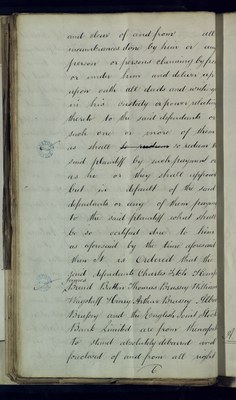 and clear of and from all
incumbrances done by him or any
person or persons claiming by from
or under him and deliver up
upon oath all deeds and writings
in his custody or power relating
thereto to the said defendants or
such one or more of them
as shall so redeem so redeem the
said plaintiff by such payment or
as he or they shall appoint
but in default of the said
defendants or any of them paying
to the said plaintiff what shall
be so certified due to him
as aforesaid by the time aforesaid
then It is Ordered that the
said defendants Charles
David Thomas Brassey William
Wagstaff Henry Arthur Brassey Albert
Brassey and the English Joint Stock
Bank Limited are from thenceforth
to stand absolutely debarred and
foreclosed of and from all right